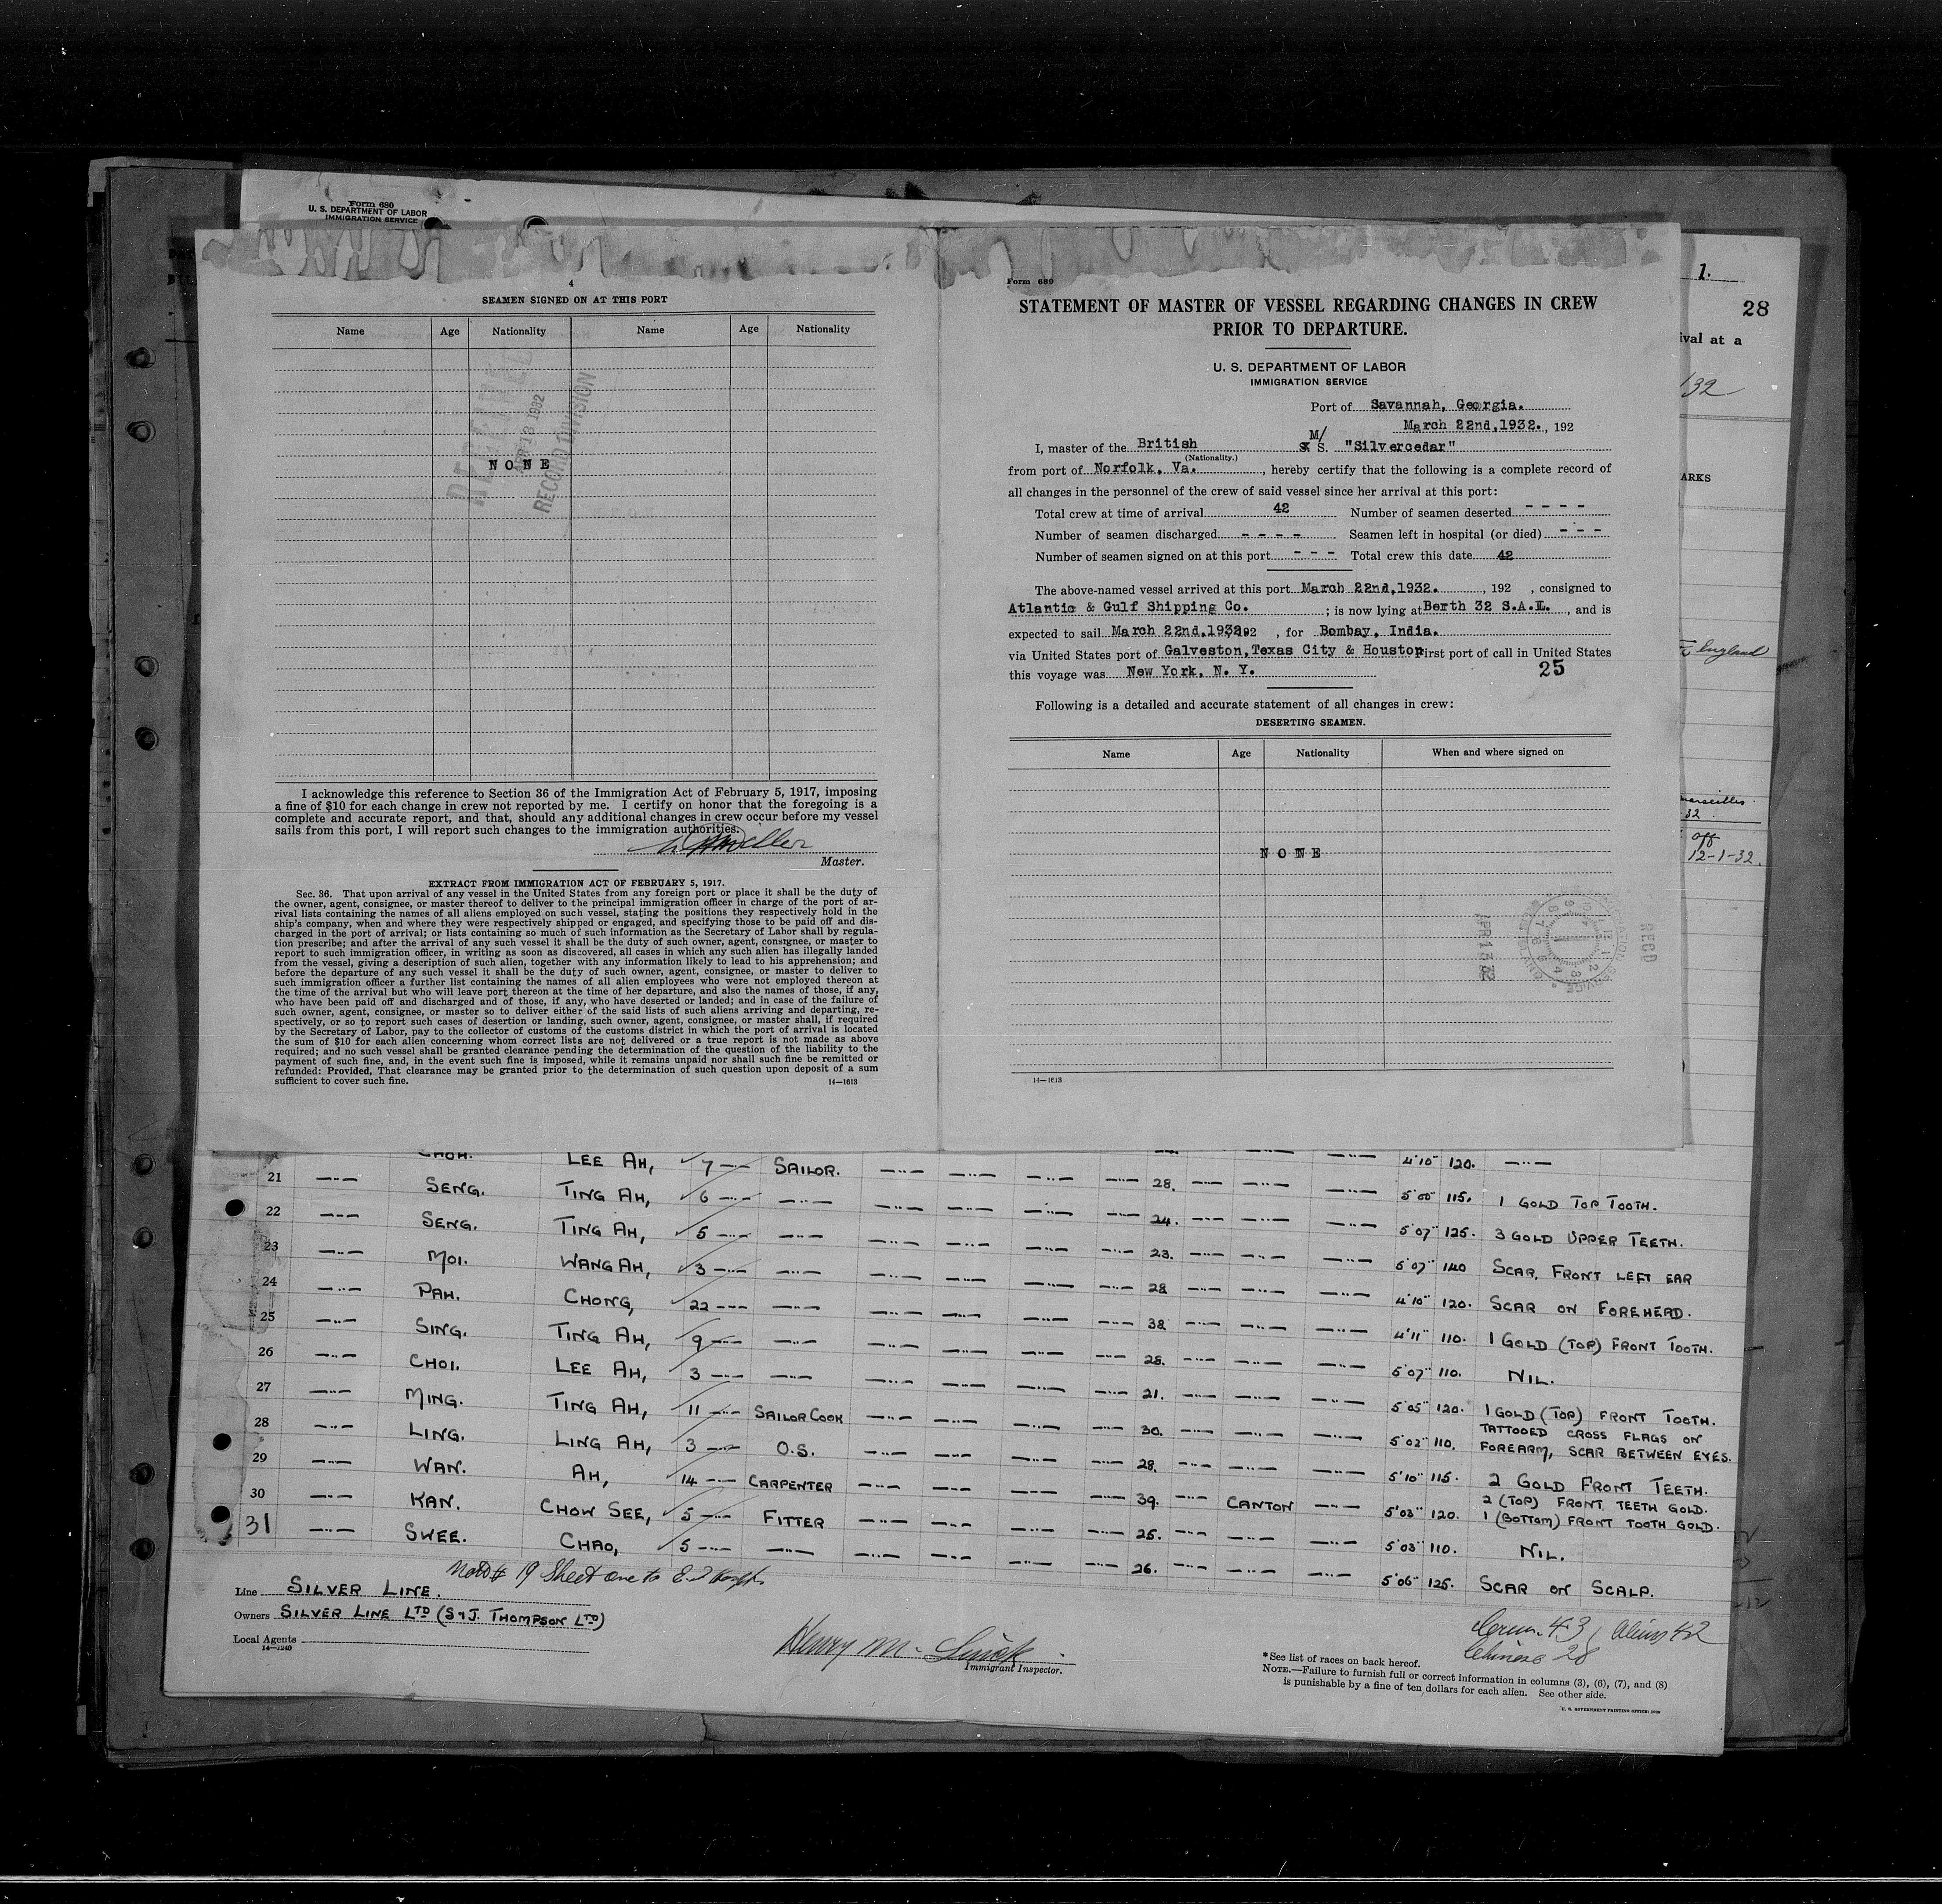 Form 680
U. S. DEPARTMENT OF LABOR
IMMIGRATION SERVICE
4
SEAMEN SIGNED ON AT THIS PORT
Name Age Nationality Name Age Nationality
NONE
RECEIVED
APR 18 1932
RECORD DIVISION
I acknowledge this reference to Section 36 of the Immigration Act of February 5, 1917, imposing
a fine of $10 for each change in crew not reported by me. I certify on honor that the foregoing is a
complete and accurate report, and that, should any additional changes in crew occur before my vessel
sails from this port, I will report such changes to the immigration authorities.
Master.
EXTRACT FROM IMMIGRATION ACT OF FEBRUARY 5, 1917.
Sec. 36. That upon arrival of any vessel in the United States from any foreign port or place it shall be the duty of
the owner, agent, consignee, or master thereof to deliver to the principal immigration officer in charge of the port of ar-
rival lists containing the names of all aliens employed on such vessel, stating the positions they respectively hold in the
ship's company, when and where they were respectively shipped or engaged, and specifying those to be paid off and dis-
charged in the port of arrival; or lists containing so much of such information as the Secretary of Labor shall by regula-
tion prescribe; and after the arrival of any such vessel it shall be the duty of such owner, agent, consignee, or master to
report to such immigration officer, in writing as soon as discovered, all cases in which any such alien has illegally landed
from the vessel, giving a description of such alien, together with any information likely to lead to his apprehension; and
before the departure of any such vessel it shall be the duty of such owner, agent, consignee, or master to deliver to
such immigration officer a further list containing the names of all alien employees who were not employed thereon at
the time of the arrival but who will leave port thereon at the time of her departure, and also the names of those, if any,
who have been paid off and discharged and of those, if any, who have deserted or landed; and in case of the failure of
such owner, agent, consignee, or master so to deliver either of the said lists of such aliens arriving and departing, re-
spectively, or so to report such cases of desertion or landing, such owner, agent, consignee, or master shall, if required
by the Secretary of Labor, pay to the collector of customs of the customs district in which the port of arrival is located
the sum of $10 for each alien concerning whom correct lists are not delivered or a true report is not made as above
required; and no such vessel shall be granted clearance pending the determination of the question of the liability to the
payment of such fine, and, in the event such fine is imposed, while it remains unpaid nor shall such fine be remitted or
refunded: Provided, That clearance may be granted prior to the determination of such question upon deposit of a sum
sufficient to cover such fine.
14—1613
Form 689
STATEMENT OF MASTER OF VESSEL REGARDING CHANGES IN CREW
PRIOR TO DEPARTURE.
U. S. DEPARTMENT OF LABOR
IMMIGRATION SERVICE
Port of Savannah, Georgia.
March 22nd,1932., 192
I, master of the British M/ S. "Silvercedar"
(Nationality.)
from port of Norfolk, Va., hereby certify that the following is a complete record of
all changes in the personnel of the crew of said vessel since her arrival at this port:
Total crew at time of arrival 42 Number of seamen deserted - - - -
Number of seamen discharged - - - - Seamen left in hospital (or died) - - -
Number of seamen signed on at this port - - - Total crew this date 42
The above-named vessel arrived at this port March 22nd,1932., 192 , consigned to
Atlantic & Gulf Shipping Co. ; is now lying at Berth 32 S.A.L., and is
expected to sail March 22nd,1932. 192 , for Bombay, India.
via United States port of Galveston,Texas City & Houston First port of call in United States
this voyage was New York, N. Y.
25
Following is a detailed and accurate statement of all changes in crew:
DESERTING SEAMEN.
Name Age Nationality When and where signed on
NONE
APR 13 32
RECD
14—1613
1.
28
ival at a
132
ARKS
England
Marseilles
32
off
12-1-32.
LEE AH, 7 SAILOR. 4'10" 120.
21 SENG. TING AH, 6 28. 5'00" 115. 1 GOLD TOP TOOTH.
22 SENG. TING AH, 5 24. 5'07" 125. 3 GOLD UPPER TEETH.
23 MOI. WANG AH, 3 23. 5'07" 140 SCAR, FRONT LEFT EAR
24 PAH. CHONG, 22 28 4'10" 120. SCAR ON FOREHEAD.
25 SING. TING AH, 9 38 4'11" 110. 1 GOLD (TOP) FRONT TOOTH.
26 CHOI. LEE AH, 3 28. 5'07" 110. NIL.
27 MING. TING AH, 11 SAILOR COOK 21. 5'05" 120. 1 GOLD (TOP) FRONT TOOTH.
28 LING. LING AH, 3 O.S. 30. 5'02" 110. TATTOOED CROSS FLAGS ON
FOREARM, SCAR BETWEEN EYES.
29 WAN. AH, 14 CARPENTER 28. 5'10" 115. 2 GOLD FRONT TEETH.
30 KAN. CHOW SEE, 5 FITTER 39. CANTON 5'03" 120. 2 (TOP) FRONT TEETH GOLD.
1 (BOTTOM) FRONT TOOTH GOLD.
31 SWEE. CHAO, 5 25. 5'03" 110. NIL.
26. 5'06" 125. SCAR ON SCALP.
19 Sheet one to
Line SILVER LINE.
Owners SILVER LINE LTD (S & J. THOMPSON LTD)
Local Agents
14—1240
Henry M.
Immigrant Inspector.
Crew 43 Aliens 42
Chinese 28
*See list of races on back hereof.
NOTE.—Failure to furnish full or correct information in columns (3), (6), (7), and (8)
is punishable by a fine of ten dollars for each alien. See other side.
U. S. GOVERNMENT PRINTING OFFICE